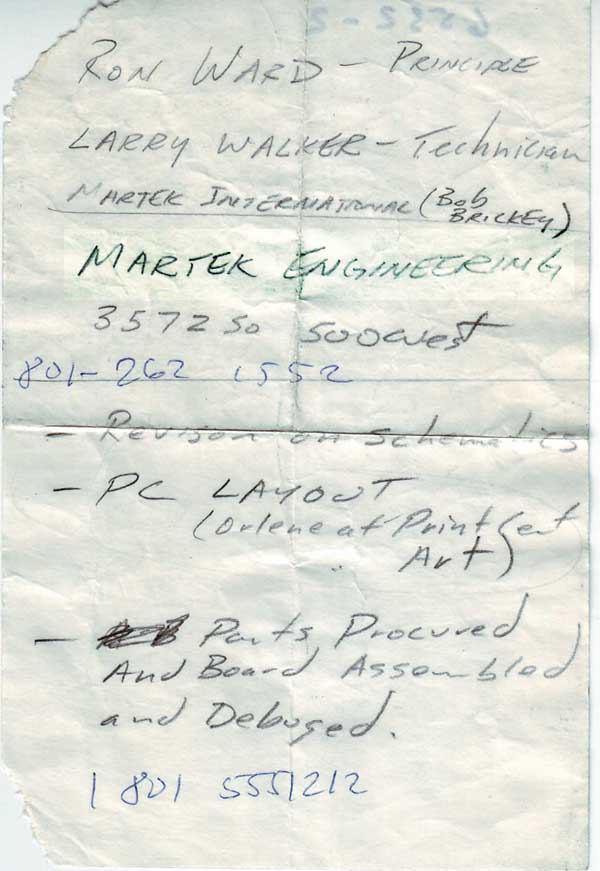 RON WARD - PRINCIPLE
LARRY WALKER - Technician
MARTEK INTERNATIONAL (Bob
BRICKEY)
MARTEK ENGINEERING
3572 So 500 West
801-262 1552
- Revison on schematics
- PC LAYOUT
(Orlene at Print Cent
Art)
- Parts Procured
And Board Assembled
and Debuged.
1 801 5551212